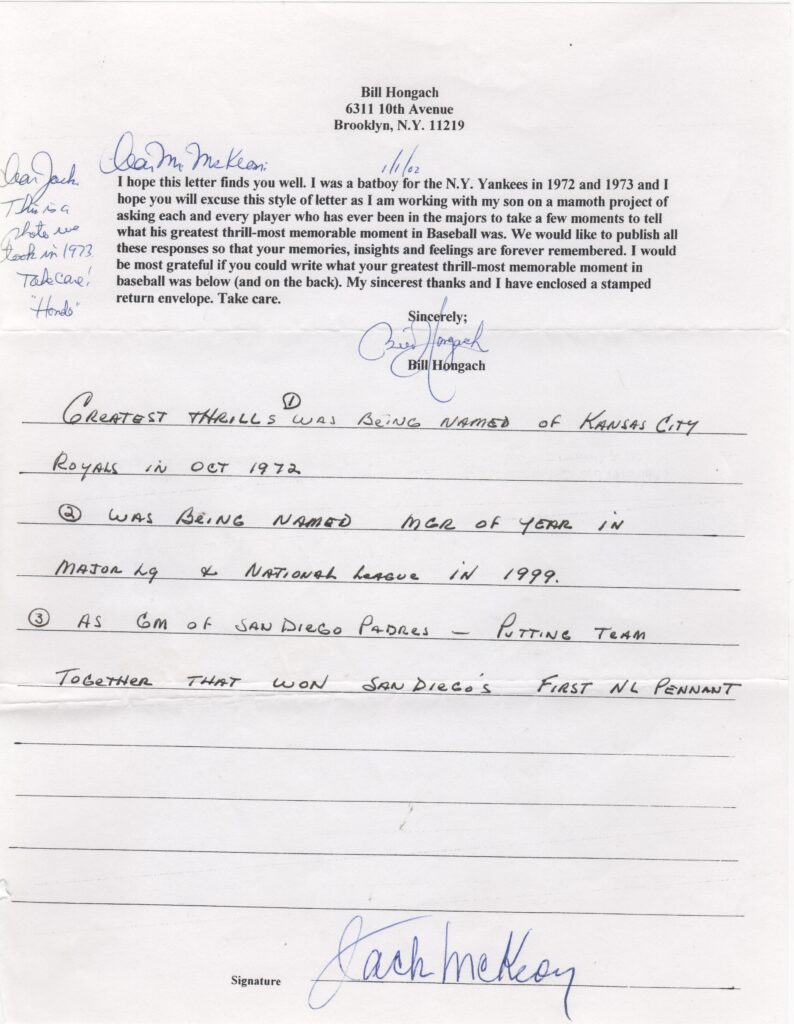 Bill Hongach
6311 10th Avenue
Brooklyn, N.Y. 11219
Dear Mr McKeon:
1/1/02
Dear Jack
This is a
photo we
took in 1973.
Take Care!
"Hondo"
I hope this letter finds you well. I was a batboy for the N.Y. Yankees in 1972 and 1973 and I
hope you will excuse this style of letter as I am working with my son on a mamoth project of
asking each and every player who has ever been in the majors to take a few moments to tell
what his greatest thrill-most memorable moment in Baseball was. We would like to publish all
these responses so that your memories, insights and feelings are forever remembered. I would
be most grateful if you could write what your greatest thrill-most memorable moment in
baseball was below (and on the back). My sincerest thanks and I have enclosed a stamped
return envelope. Take care.
Sincerely;
Bill Hongach
Bill Hongach
GREATEST THRILLS ① WAS BEING NAMED OF KANSAS CITY
ROYALS IN OCT 1972
② WAS BEING NAMED MGR OF YEAR IN
MAJOR LG & NATIONAL LEAGUE IN 1999.
③ AS GM OF SAN DIEGO PADRES – PUTTING TEAM
TOGETHER THAT WON SAN DIEGO'S FIRST NL PENNANT
Signature Jack McKeon